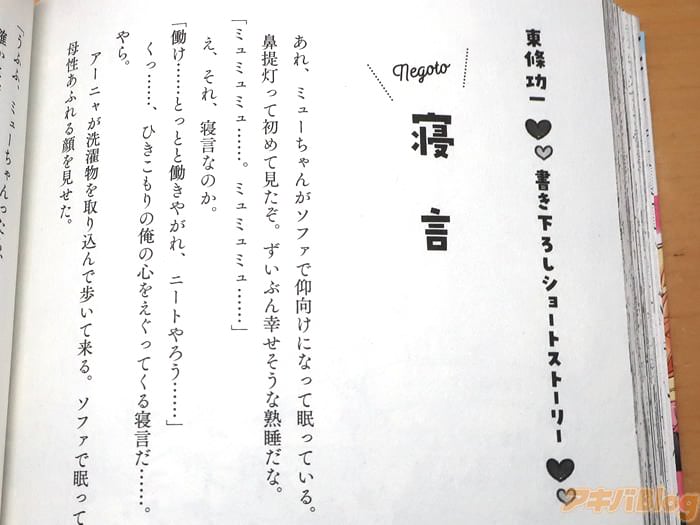 東條功一♥♥書き下ろしショートストーリー♥♥
Negoto
寝言
あれ、ミューちゃんがソファで仰向けになって眠っている。
鼻提灯って初めて見たぞ。ずいぶん幸せそうな熟睡だな。
「ミュミュミュ……。ミュミュミュ……」
え、それ、寝言なのか。
「働け……とっとと働きやがれ、ニートやろう……」
くっ……、ひきこもりの俺の心をえぐってくる寝言だ……。
やら。
アーニャが洗濯物を取り込んで歩いて来る。ソファで眠って
母性あふれる顔を見せた。
「うふふ、ミューちゃんったら、
アキバBlog